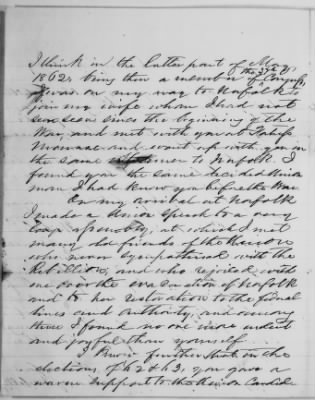 I think in the latter part of May,
1862, being then a member of the 37th Congress,
I was on my way to Norfolk to
join my wife whom I had not
seen since the beginning of the
War, and met with you at
and went up with you in
the same to Norfolk. I
found you the same decided Union
man I had know you before the War.
On my arrival at Norfolk
I made a Union Speech to a very
large assembly, at which I met
many old friends of the Union
who never sympathised with the
Rebellion, and who rejoiced with
me over the evacuation of Norfolk
and to her restoration to the federal
lines and authority, and among
them I found no one more ardent
and joyful than yourself.
I know further that in the
elections of 62 & 63, you gave a
warm support to the Union Candid-